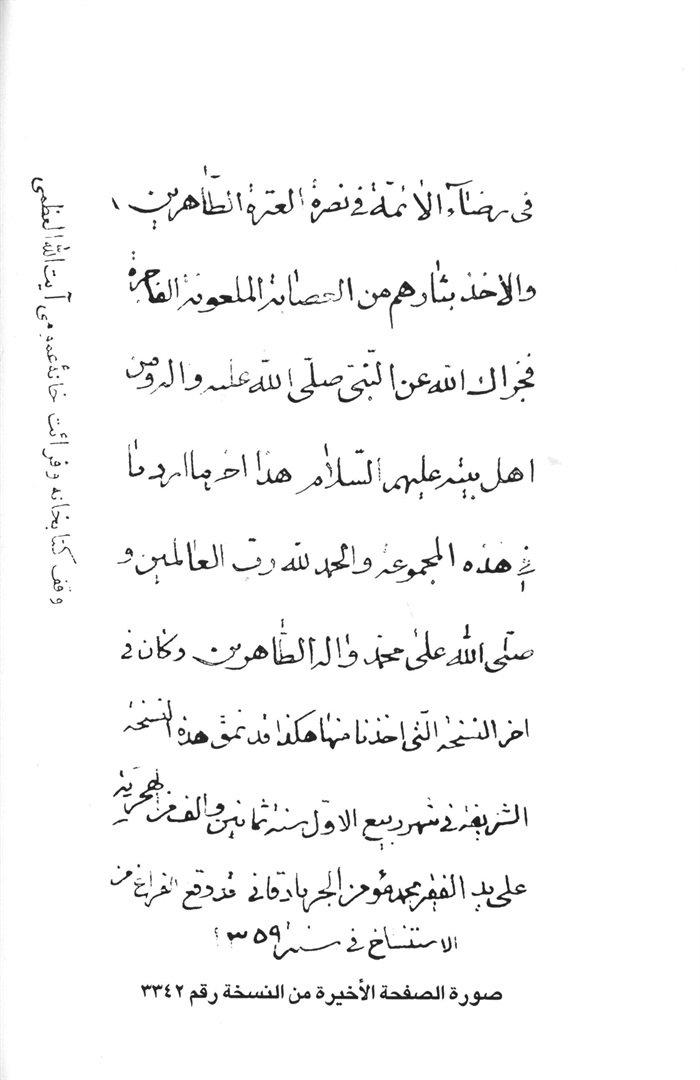 في رضاء الائمة في نصرة العترة الطاهرين
والاخذ بثارهم من العصابة الملعونة الفاجرة
فجزاك الله عن النبي صلى الله عليه واله ومن
اهل بيته عليهم السلام هذا اخر ما اردنا
في هذه المجموعة والحمد لله رب العالمين و
صلى الله على محمد واله الطاهرين وكان في
اخر النسخة التي اخذنا منها هكذا قد نمق هذه النسخة
الشريفة في شهر ربيع الاول سنة ثمانين والف من الهجرية
على يد الفقير محمد مؤمن الجربادقاني قد وقع الفراغ من
الاستنساخ في سنة ١٣٥٩
وقف كتابخانه وقرائت خانۀ عمومى آيت الله العظمى
صورة الصفحة الأخيرة من النسخة رقم ٣٣٤٢